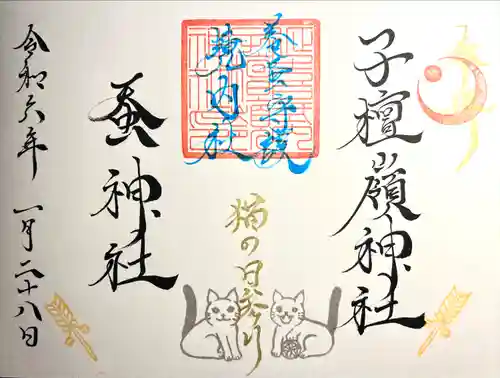 子檀嶺神社
養蚕守護
境内社
猫の日祭り
蚕神社
令和六年 一月二十八日